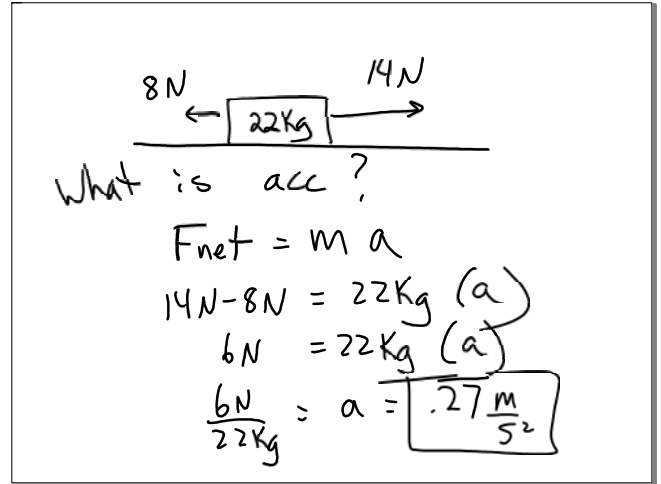 8N 14N
22Kg
What is acc?
Fnet = m a
14N-8N = 22Kg (a)
6N = 22Kg (a)
6N/22Kg = a = .27 m/s²